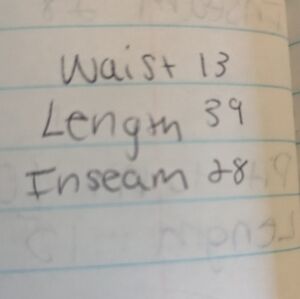 Waist 13
Length 39
Inseam 28